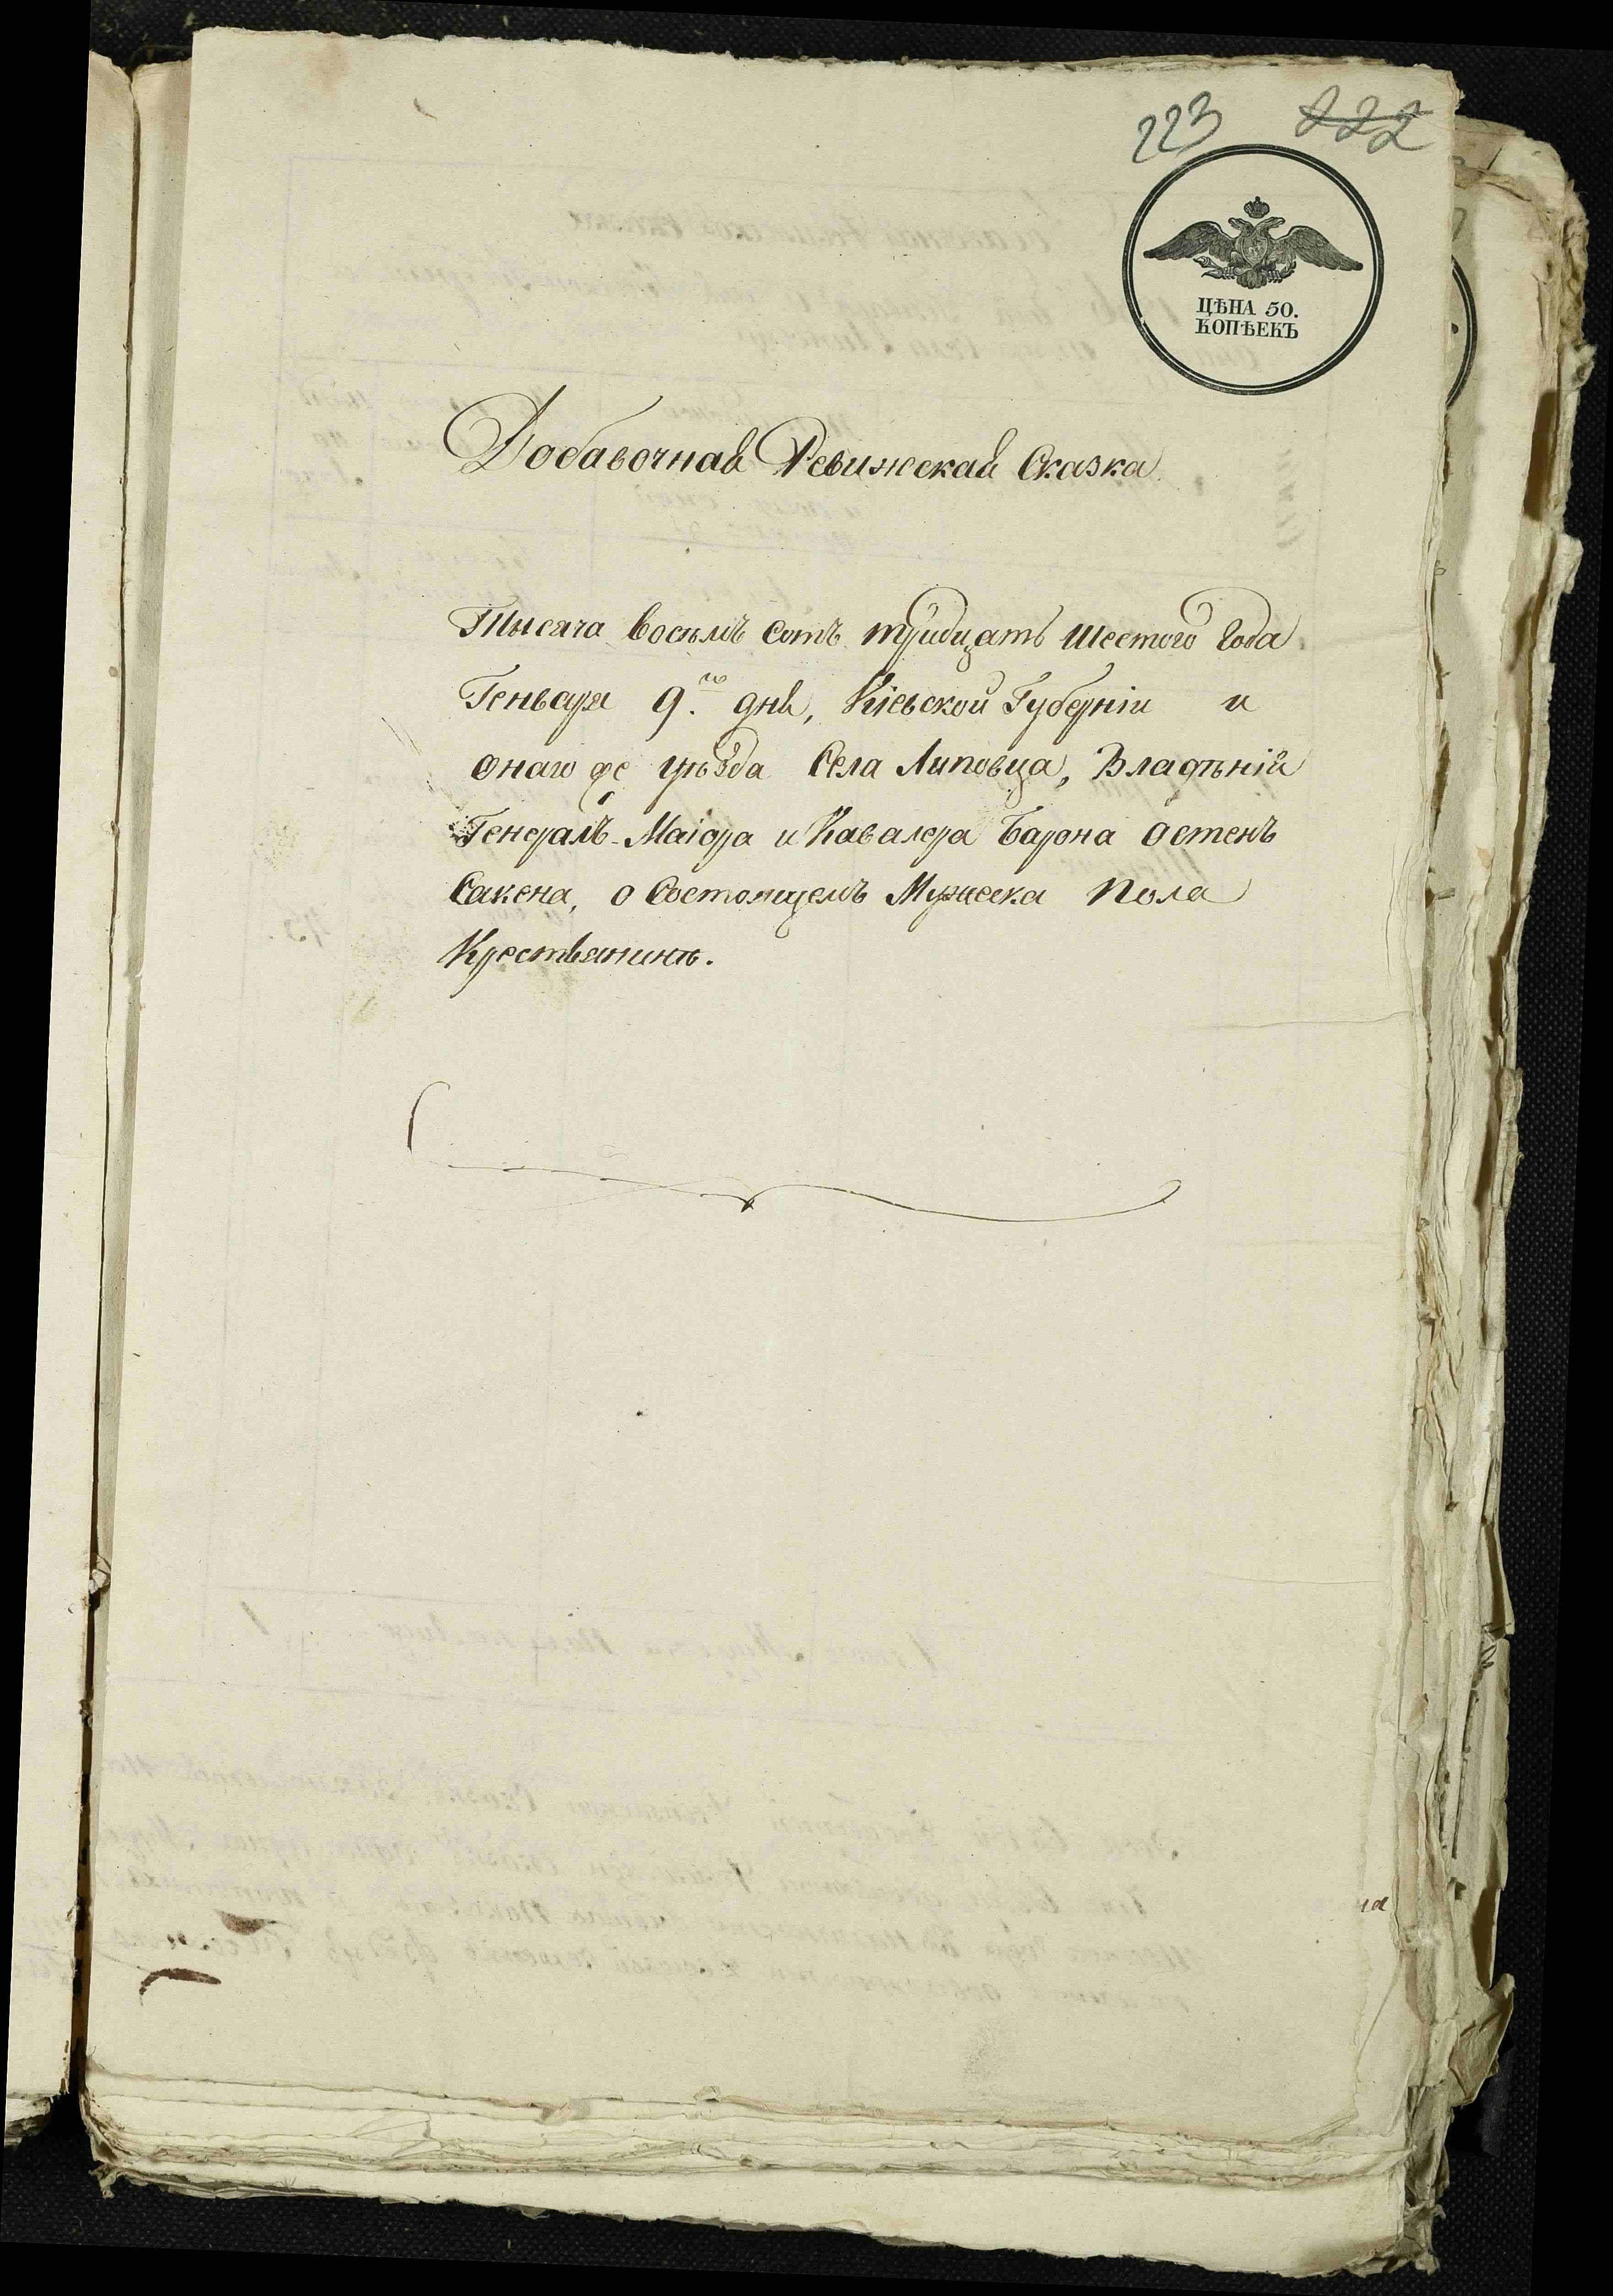 223 222
ЦѢНА 50.
КОПѢЕКЪ
Добавочная Ревижская Сказка
Тысяча восемъ сотъ тридцать шестого Года
Генваря 9.го дня, Кіевской Губерніи и
онаго же уѣзда Села Липовца, Владѣнія
Генералъ-Маіора и Кавалера Барона Остенъ
Сакена, о Состоящемъ Мужеска Пола
Крестьянинѣ.